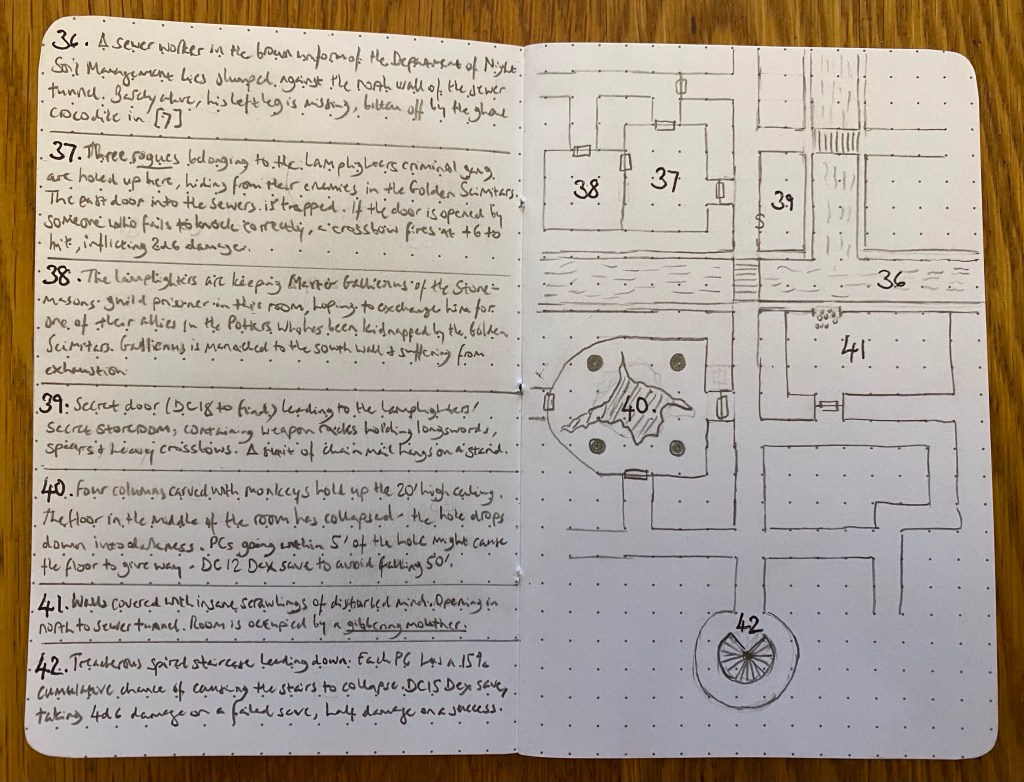 36. A sewer worker in the brown uniform of the Department of Night
Soil Management lies slumped against the north wall of the sewer
tunnel. Barely alive, his left leg is missing, bitten off by the ghoul
crocodile in [7]
37. Three rogues belonging to the Lamplighters criminal gang
are holed up here, hiding from their enemies in the Golden Scimitars.
The east door into the sewers is trapped. If the door is opened by
someone who fails to knock correctly, a crossbow fires at +6 to
hit, inflicting 2d6 damage.
38. The Lamplighters are keeping Master Gallienus of the Stone-
masons guild prisoner in this room, hoping to exchange him for
one of their allies in the Potters who has been kidnapped by the Golden
Scimitars. Gallienus is manacled to the south wall & suffering from
exhaustion.
39. Secret door (DC18 to find) leading to the Lamplighters'
secret storeroom, containing weapon racks holding longswords,
spears & heavy crossbows. A suit of chain mail hangs on a stand.
40. Four columns carved with monkeys hold up the 20' high ceiling.
The floor in the middle of the room has collapsed - the hole drops
down into darkness. PCs going within 5' of the hole might cause
the floor to give way - DC 12 Dex save to avoid falling 50'.
41. Walls covered with insane scrawlings of disturbed mind. Opening in
north to sewer tunnel. Room is occupied by a gibbering mouther.
42. Treacherous spiral staircase leading down. Each PC has a 15%
cumulative chance of causing the stairs to collapse. DC15 Dex save,
taking 4d6 damage on a failed save, half damage on a success.
38
37
39
S
36
41
40.
42